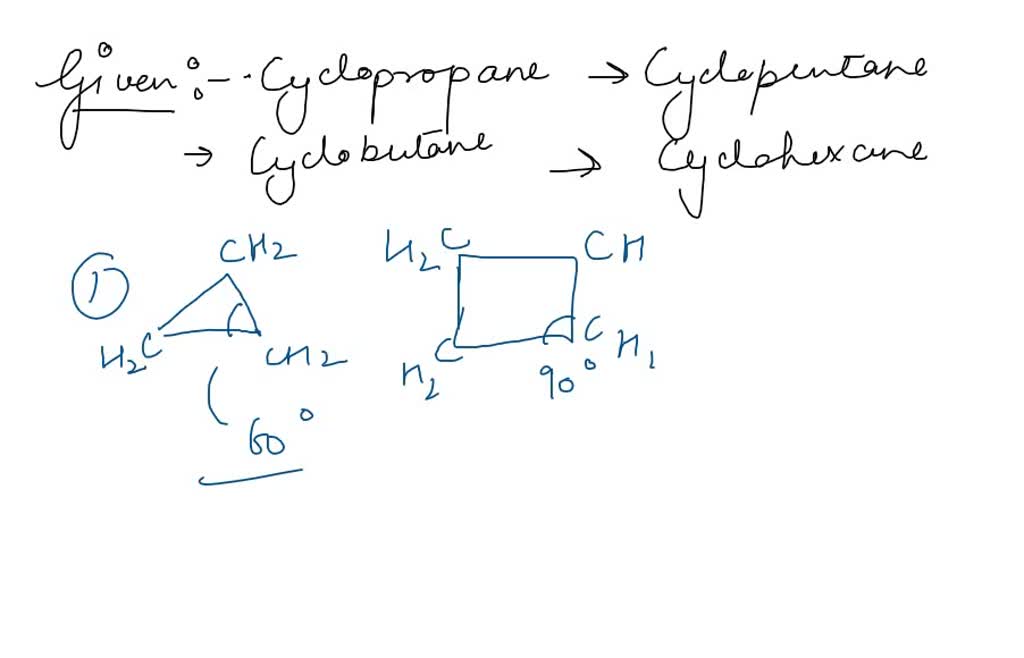 Given :- Cyclopropane → Cyclopentane
→ Cyclobutane → Cyclohexane
① CH2 H2C CH
H2C CH2 H2C CH1
60° 90°